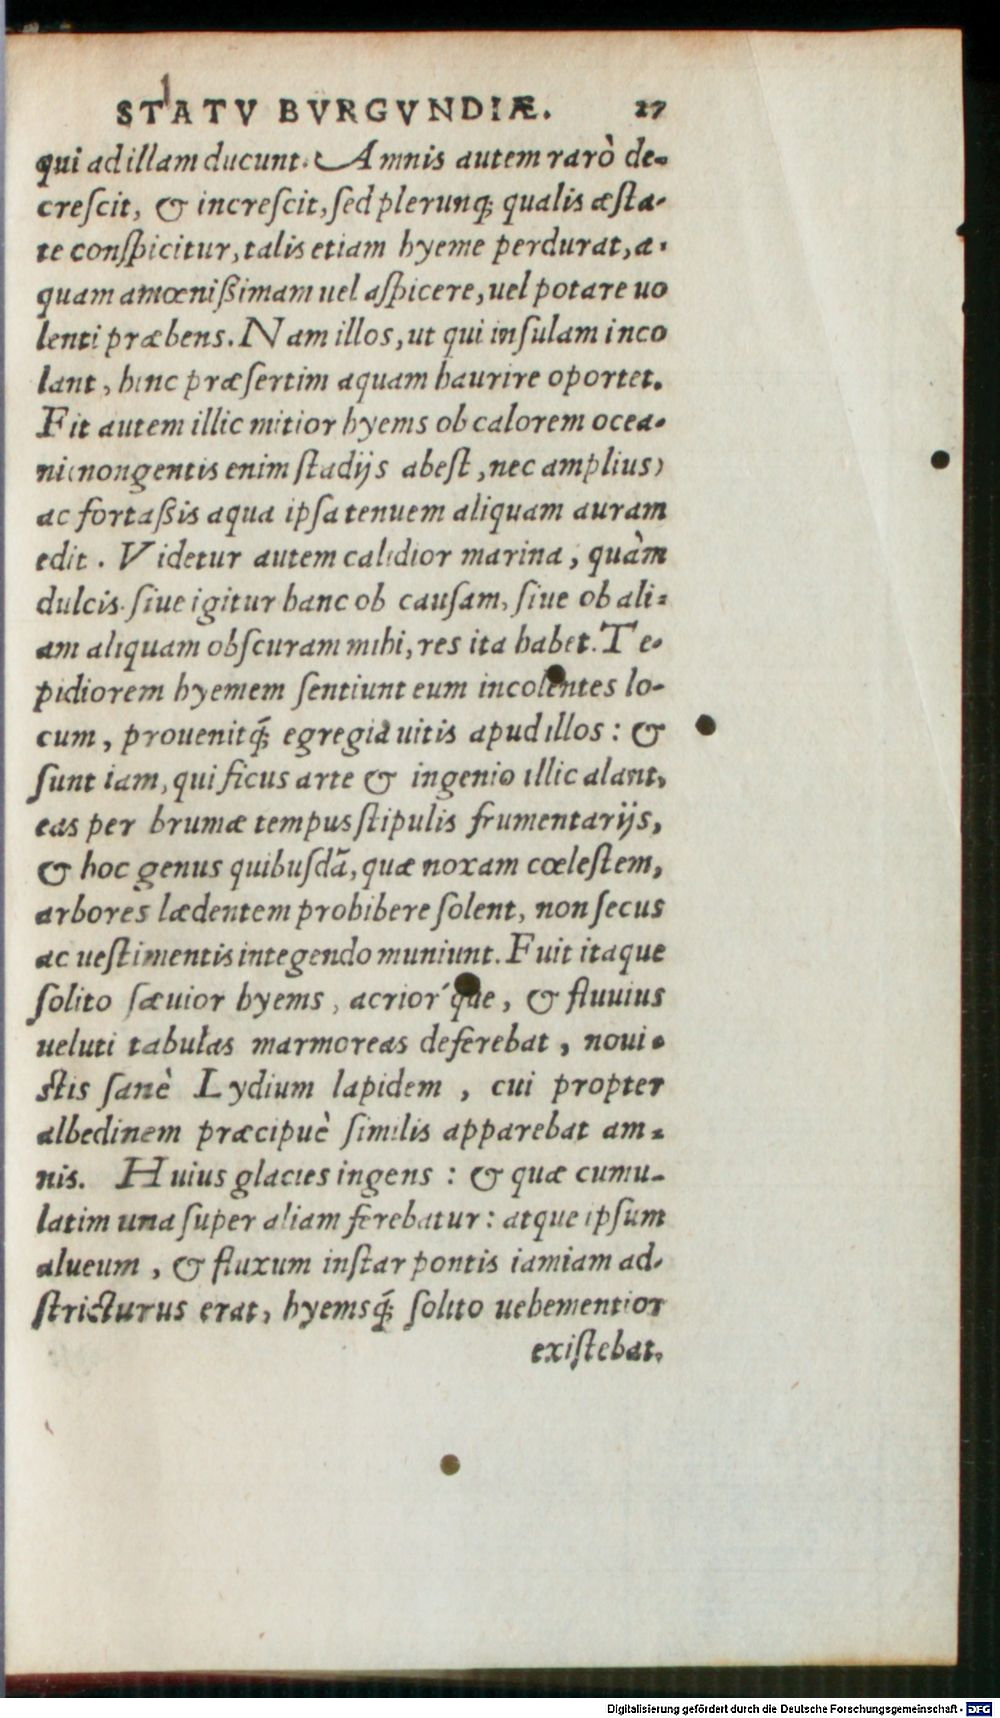 STATV BVRGVNDIÆ. 27
qui ad illam ducunt. Amnis autem rarò de-
creſcit, & increſcit, ſed plerunq; qualis æſta-
te conſpicitur, talis etiam hyeme perdurat, a-
quam amœnißimam uel aſpicere, uel potare uo
lenti præbens. Nam illos, ut qui inſulam inco
lant, hinc præſertim aquam haurire oportet.
Fit autem illic mitior hyems ob calorem ocea-
ni(nongentis enim ſtadijs abeſt, nec amplius)
ac fortaßis aqua ipſa tenuem aliquam auram
edit. Videtur autem calidior marina, quàm
dulcis. ſiue igitur hanc ob cauſam, ſiue ob ali-
am aliquam obſcuram mihi, res ita habet. Te-
pidiorem hyemem ſentiunt eum incolentes lo-
cum, prouenitq́; egregia uitis apud illos: &
ſunt iam, qui ficus arte & ingenio illic alant,
eas per brumæ tempus ſtipulis frumentarijs,
& hoc genus quibuſdā, quæ noxam cœleſtem,
arbores lædentem prohibere ſolent, non ſecus
ac ueſtimentis integendo muniunt. Fuit itaque
ſolito ſæuior hyems, acrior´que, & fluuius
ueluti tabulas marmoreas deferebat, noui-
ſtis ſanè Lydium lapidem, cui propter
albedinem præcipuè ſimilis apparebat am-
nis. Huius glacies ingens: & quæ cumu-
latim una ſuper aliam ferebatur: atque ipſum
alueum, & fluxum inſtar pontis iamiam ad-
ſtricturus erat, hyemsq́; ſolito uehementior
exiſtebat,
Digitalisierung gefördert durch die Deutsche Forschungsgemeinschaft - DFG